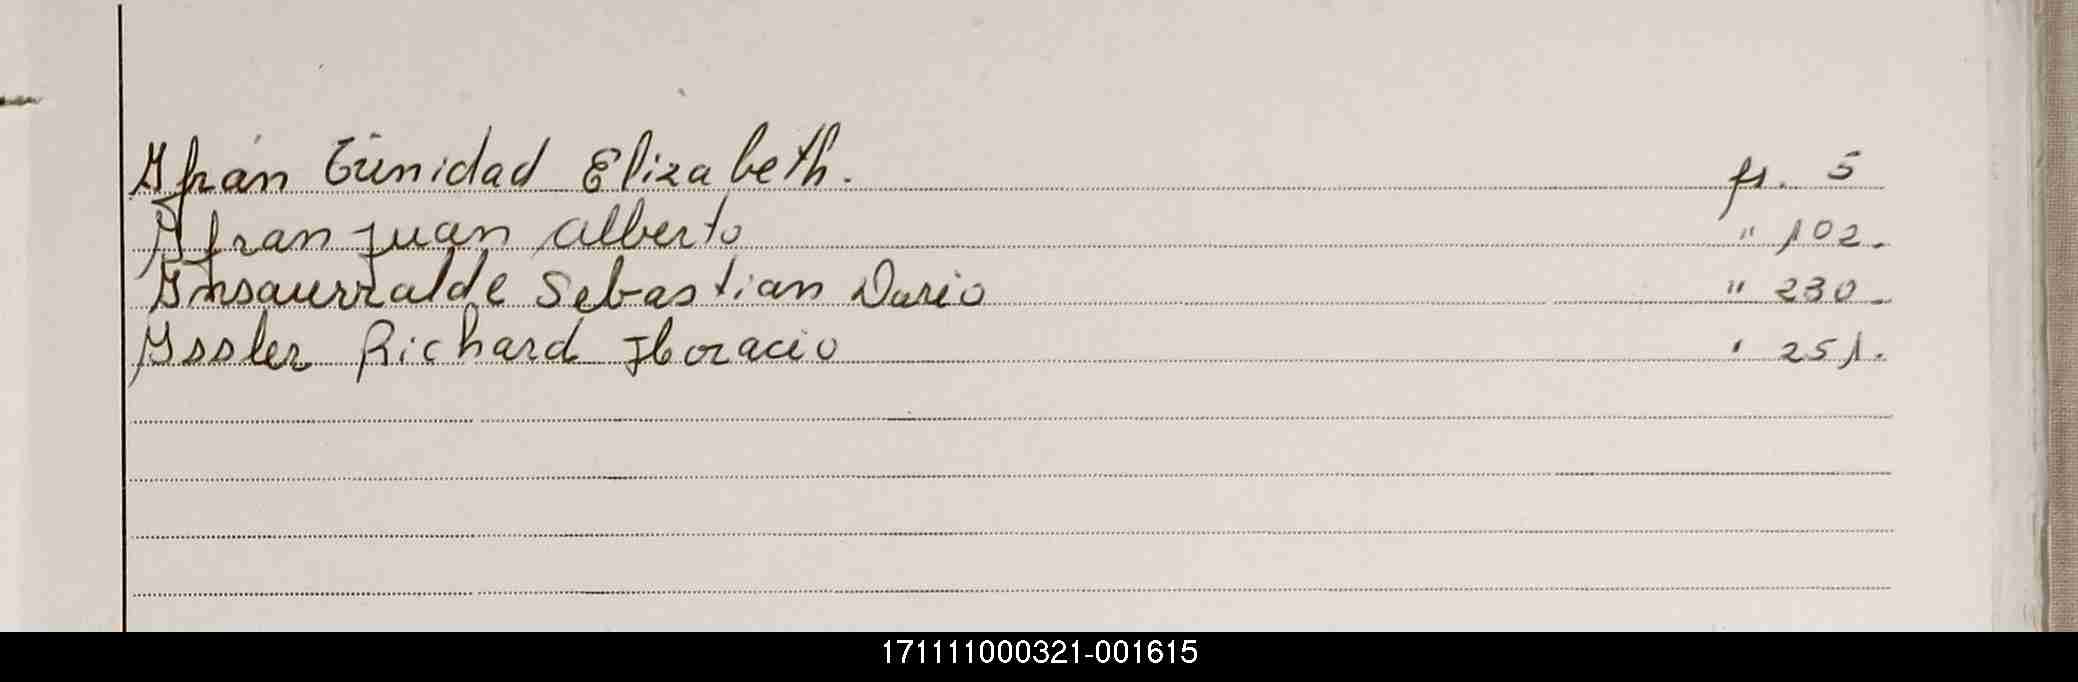 Ifrán Trinidad Elizabeth. fs. 5
Ifran Juan Alberto " 102.
Insaurralde Sebastian Dario " 230.
Issler Richard Horacio " 251.
171111000321-001615